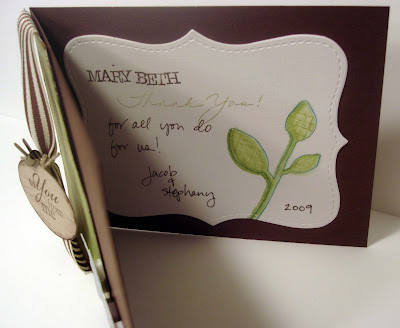 MARY BETH
Thank You!
for all you do
for us!
Jacob
&
Stephany
2009
You